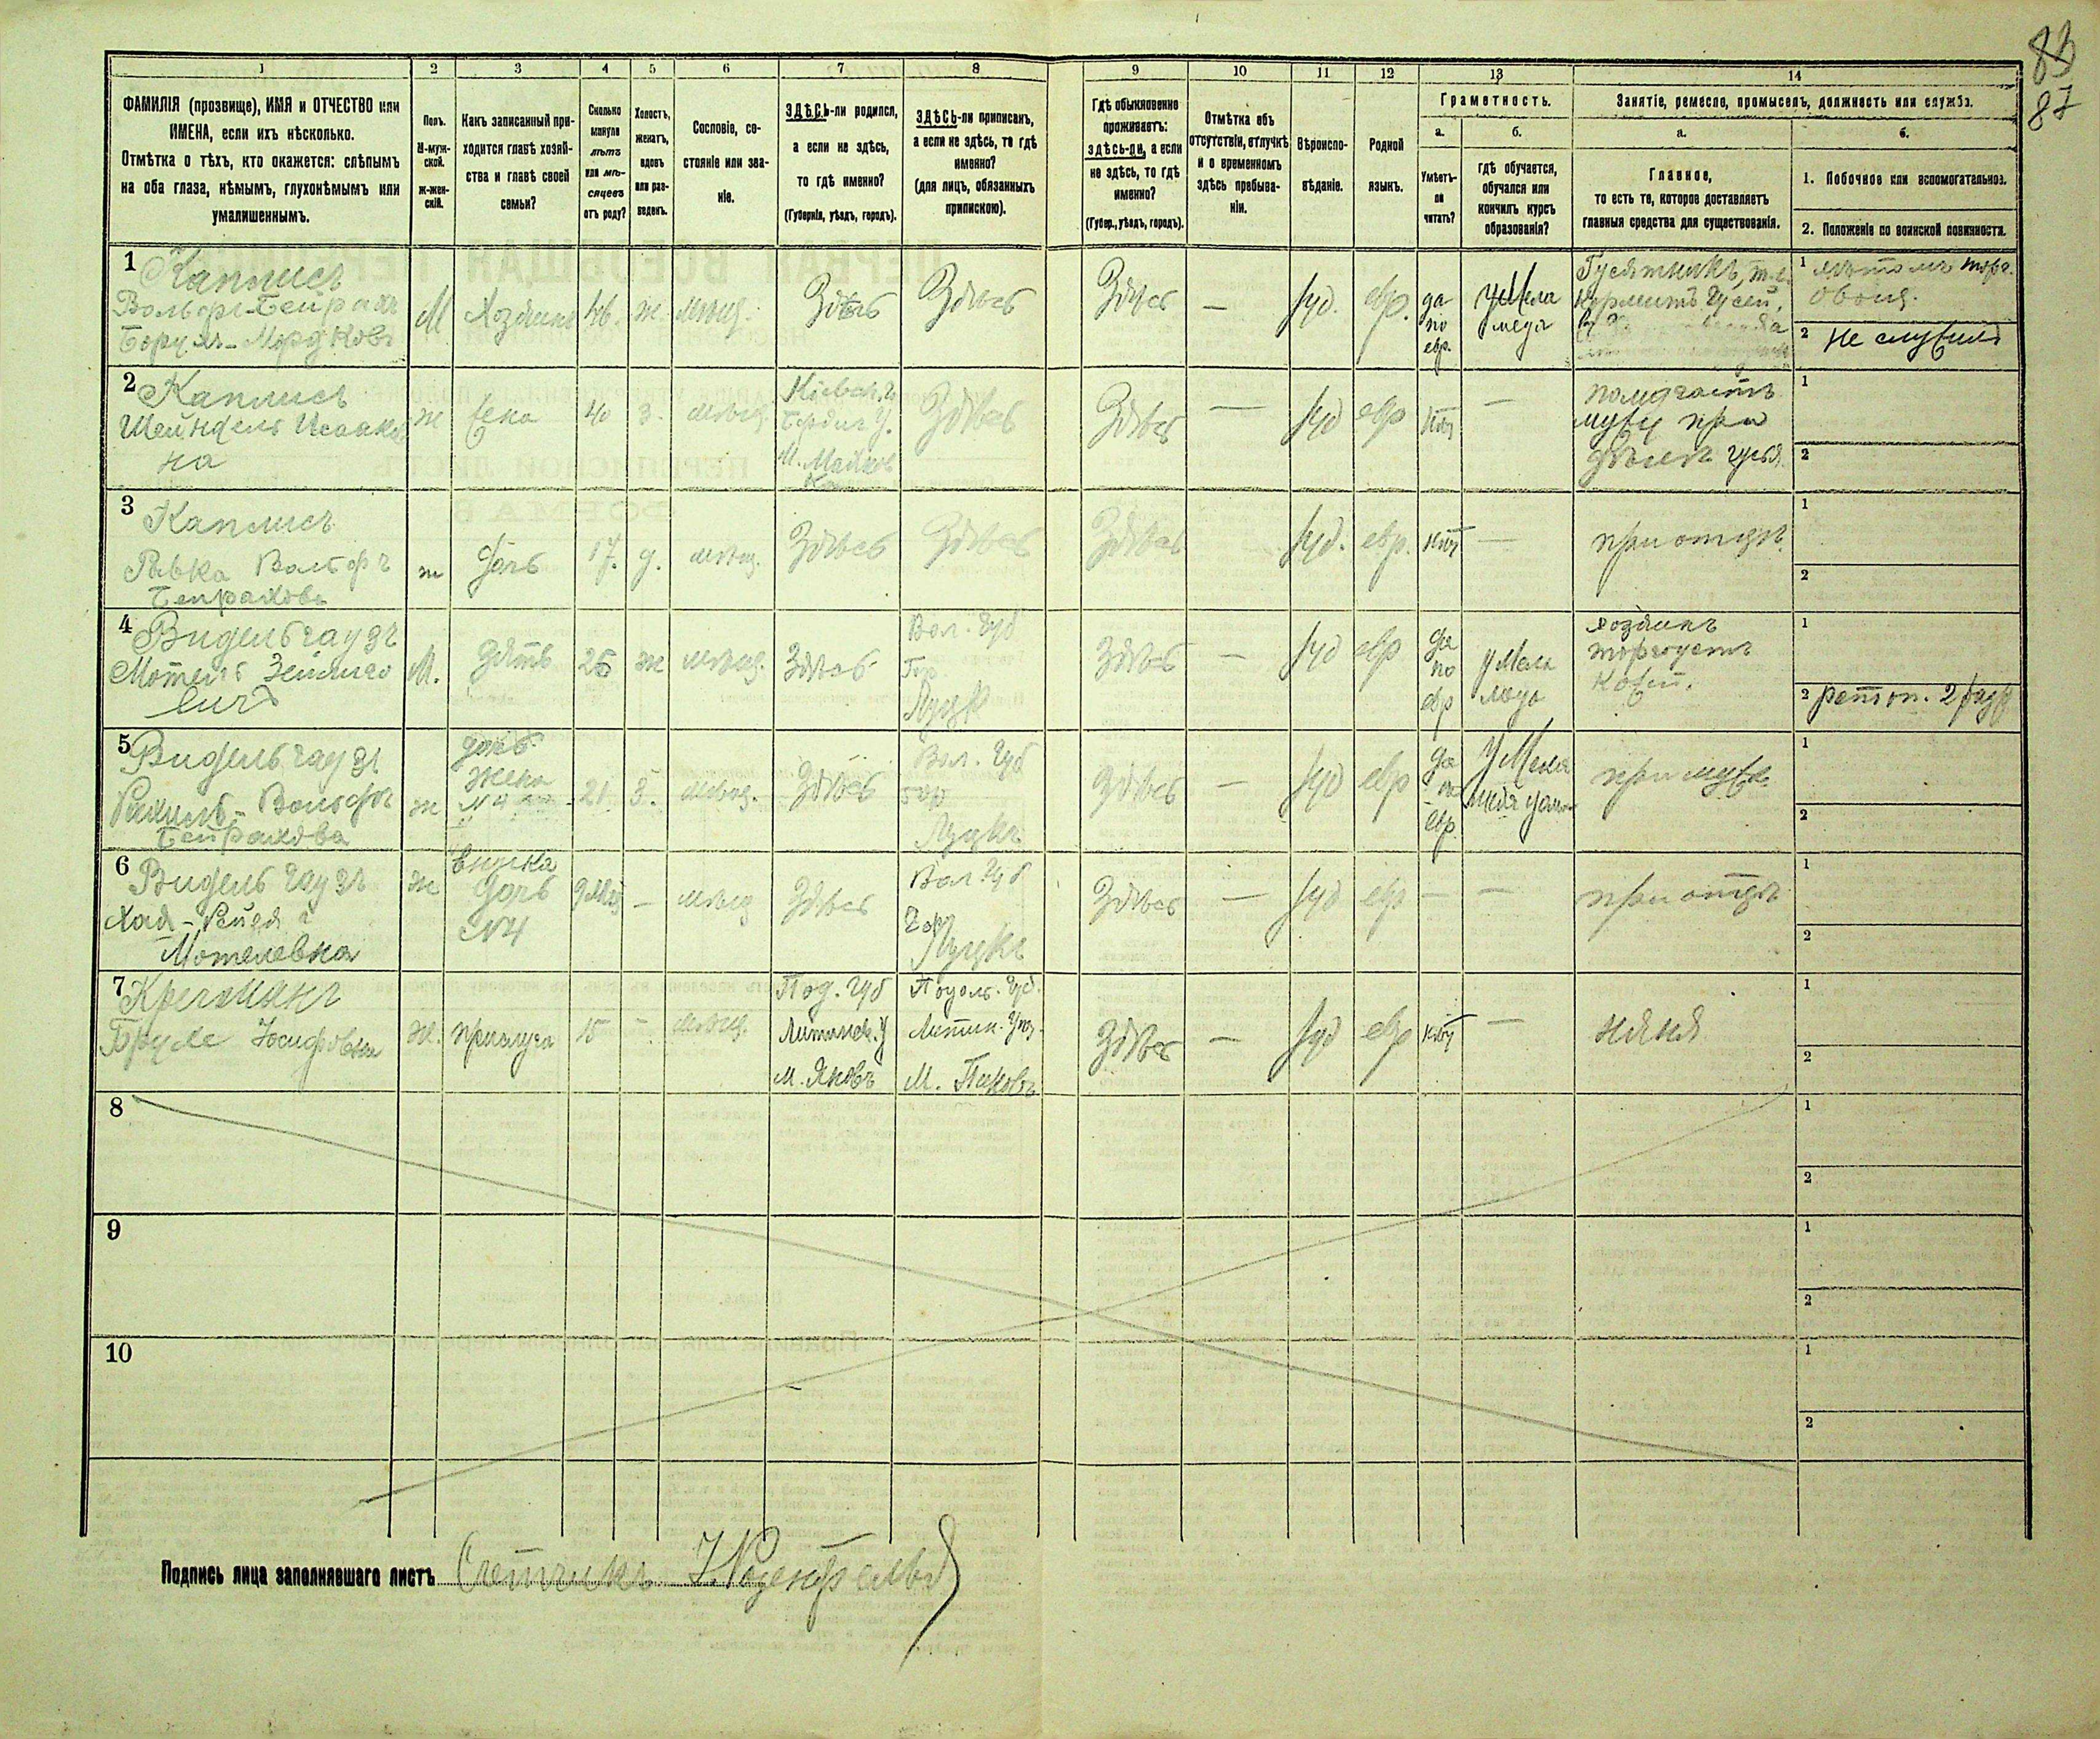 83
87
1
2
3
4
5
6
7
8
9
10
11
12
13
14
ФАМИЛІЯ (прозвище), ИМЯ и ОТЧЕСТВО или
ИМЕНА, если ихъ нѣсколько.
Отмѣтка о тѣхъ, кто окажется: слѣпымъ
на оба глаза, нѣмымъ, глухонѣмымъ или
умалишеннымъ.
Полъ.
М-муж-
ской.
ж-жен-
скій.
Какъ записанный при-
ходится главѣ хозяй-
ства и главѣ своей
семьи?
Сколько
минуло
лѣтъ
или мѣ-
сяцевъ
отъ роду?
Холостъ,
женатъ,
вдовъ
или раз-
веденъ.
Сословіе, со-
стояніе или зва-
ніе.
ЗДѢСЬ-ли родился,
а если не здѣсь,
то гдѣ именно?
(Губернія, уѣздъ, городъ).
ЗДѢСЬ-ли приписанъ,
а если не здѣсь, то гдѣ
именно?
(для лицъ, обязанныхъ
припискою).
Гдѣ обыкновенно
проживаетъ:
здѣсь-ли, а если
не здѣсь, то гдѣ
именно?
(Губер., уѣздъ, городъ).
Отмѣтка объ
отсутствіи, отлучкѣ
и о временномъ
здѣсь пребыва-
ніи.
Вѣроиспо-
вѣданіе.
Родной
языкъ.
Грамотность.
а.
б.
Умѣетъ-
ли
читать?
гдѣ обучается,
обучался или
кончилъ курсъ
образованія?
Занятіе, ремесло, промыселъ, должность или служба.
а.
б.
Главное,
то есть то, которое доставляетъ
главныя средства для существованія.
1. Побочное или вспомогательное.
2. Положеніе по воинской повинности.
1
Каплисъ
Вольфъ-Бейрахъ
М
Хозяинъ
46.
ж.
мѣщ.
Здѣсь
Здѣсь
Здѣсь
—
Іуд.
евр.
да
по
евр.
у Мела
меда
Гусятникъ, т.е.
кормитъ гусей,
1 лѣтомъ торг.
2 не служилъ
2
Каплисъ
Шейндель Исааков
на
ж
жена
40
з.
мѣщ.
Кіевск. г.
Бердич. У.
Здѣсь
Здѣсь
—
Іуд
евр
нѣт
—
помогаетъ
мужу при
1
2
3
Каплисъ
Ривка Вольфъ
Бейрахова
ж
дочь
17.
д.
мѣщ.
Здѣсь
Здѣсь
Здѣсь
Іуд.
евр.
нѣт
—
при отцѣ
1
2
4
Видельгаузъ
Мотель Зейлико
вичъ
М.
зять
25
ж
мѣщ.
Здѣсь
Вол. Губ
Гор.
Луцк
Здѣсь
—
Іуд
евр
да
по
евр
у Мела
меда
хозяинъ
торгуетъ
1
2
5
Видельгаузъ
Рахиль-Вольфъ
Бейрахова
ж
дочь
жена
№4
21
з.
мѣщ.
Здѣсь
Вол. Губ
гор
Луцкъ
здѣсь
—
Іуд
евр
да
по
евр.
у Мела
при мужѣ
1
2
6
Видельгаузъ
Хая-Рейзя
Мотелевна
ж
внучка
дочь
№4
9 мѣс
—
мѣщ
Здѣсь
Вол. Губ
гор
Луцкъ
Здѣсь
—
Іуд
евр
—
—
при отцѣ
1
2
7
Іосифовна
ж.
прислуга
15
-
мѣщ.
Под. Губ
Литинск. У
М. Яновъ
Подольс. Губ.
Литин. Уѣз.
М. Пиковъ
Здѣсь
—
Іуд
евр
нѣт
—
няня
1
2
8
1
2
9
1
2
10
1
2
Подпись лица заполнявшаго листъ Счетчикъ